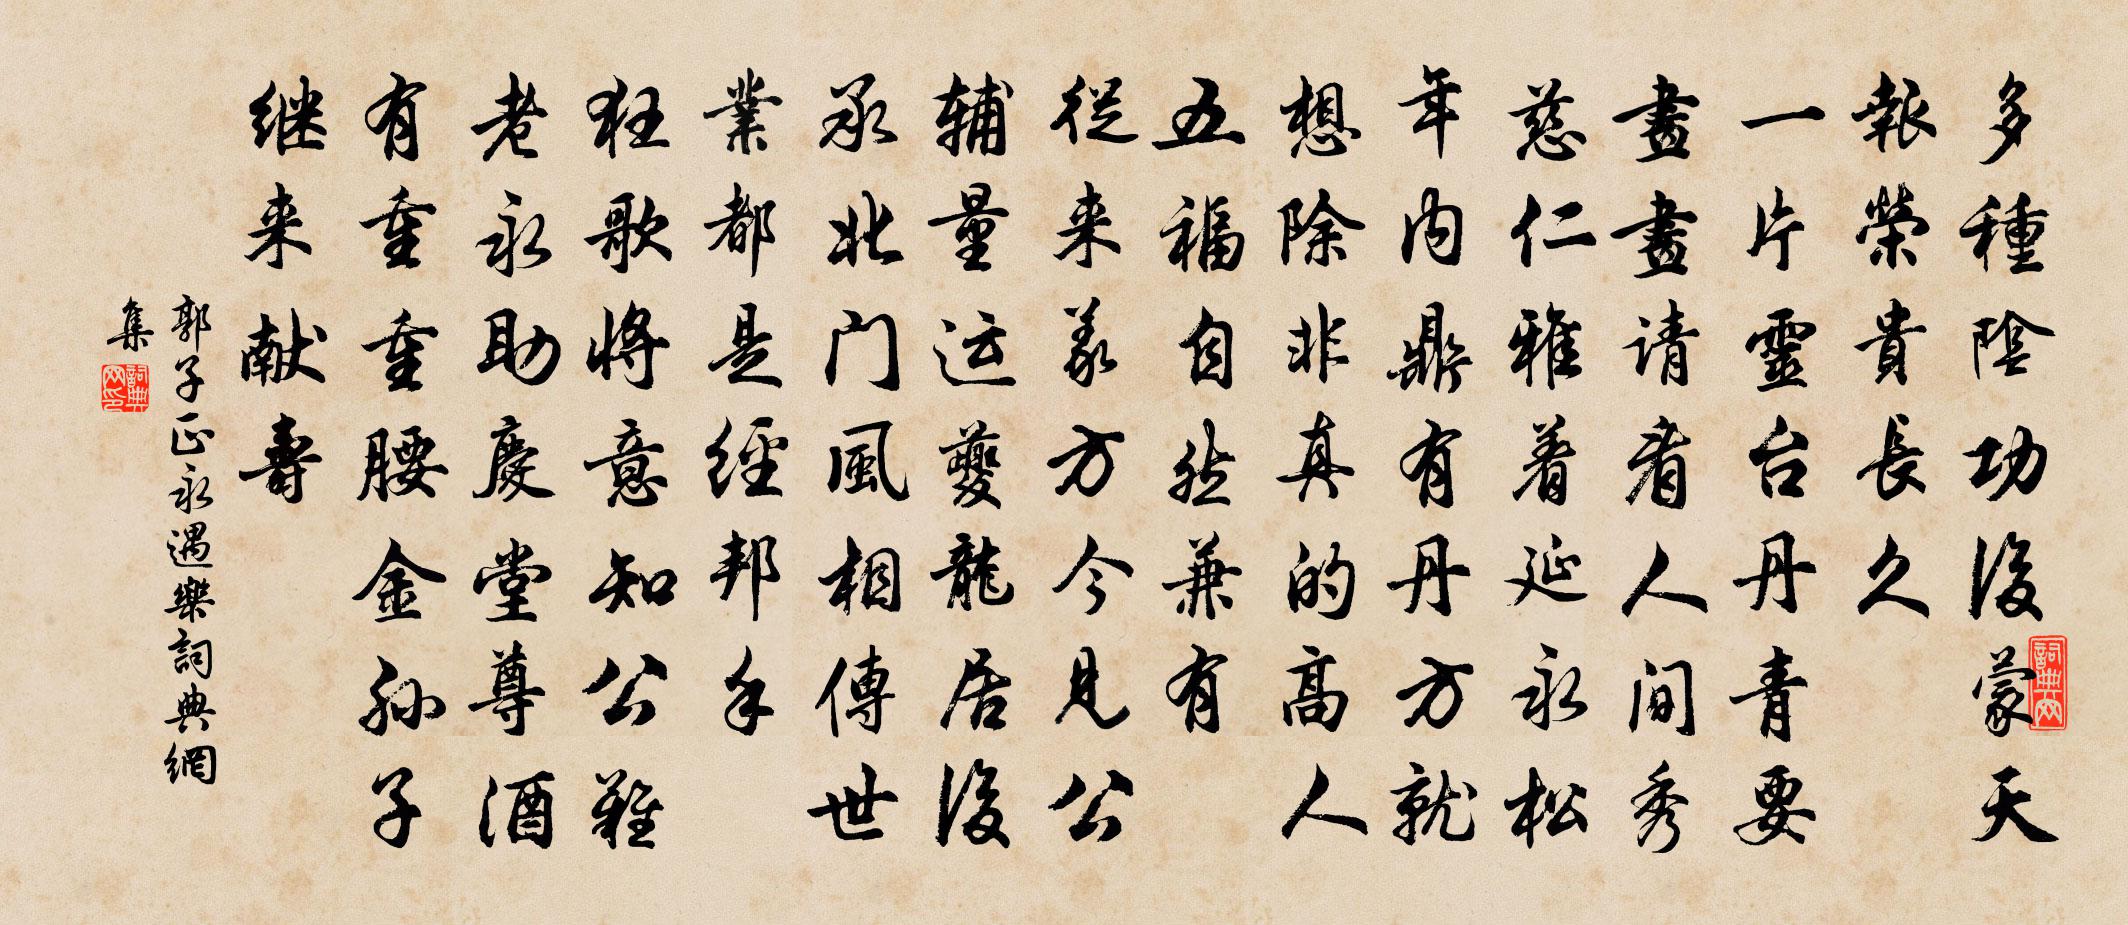 多種陰功後蒙天
報榮貴長久
一片靈台丹青要
畫畫请看人间秀
慈仁雅着延永松
年内鼎有丹方就
想除非真的高人
五福自然兼有
從来義方今見公
辅量运夔龍居後
承北门風相傳世
業都是經邦手
狂歌將意知公難
老永助慶堂尊酒
有重重腰金孙子
继来献壽
郭子正永遇樂詞典網
集
詞典网
詞典网印